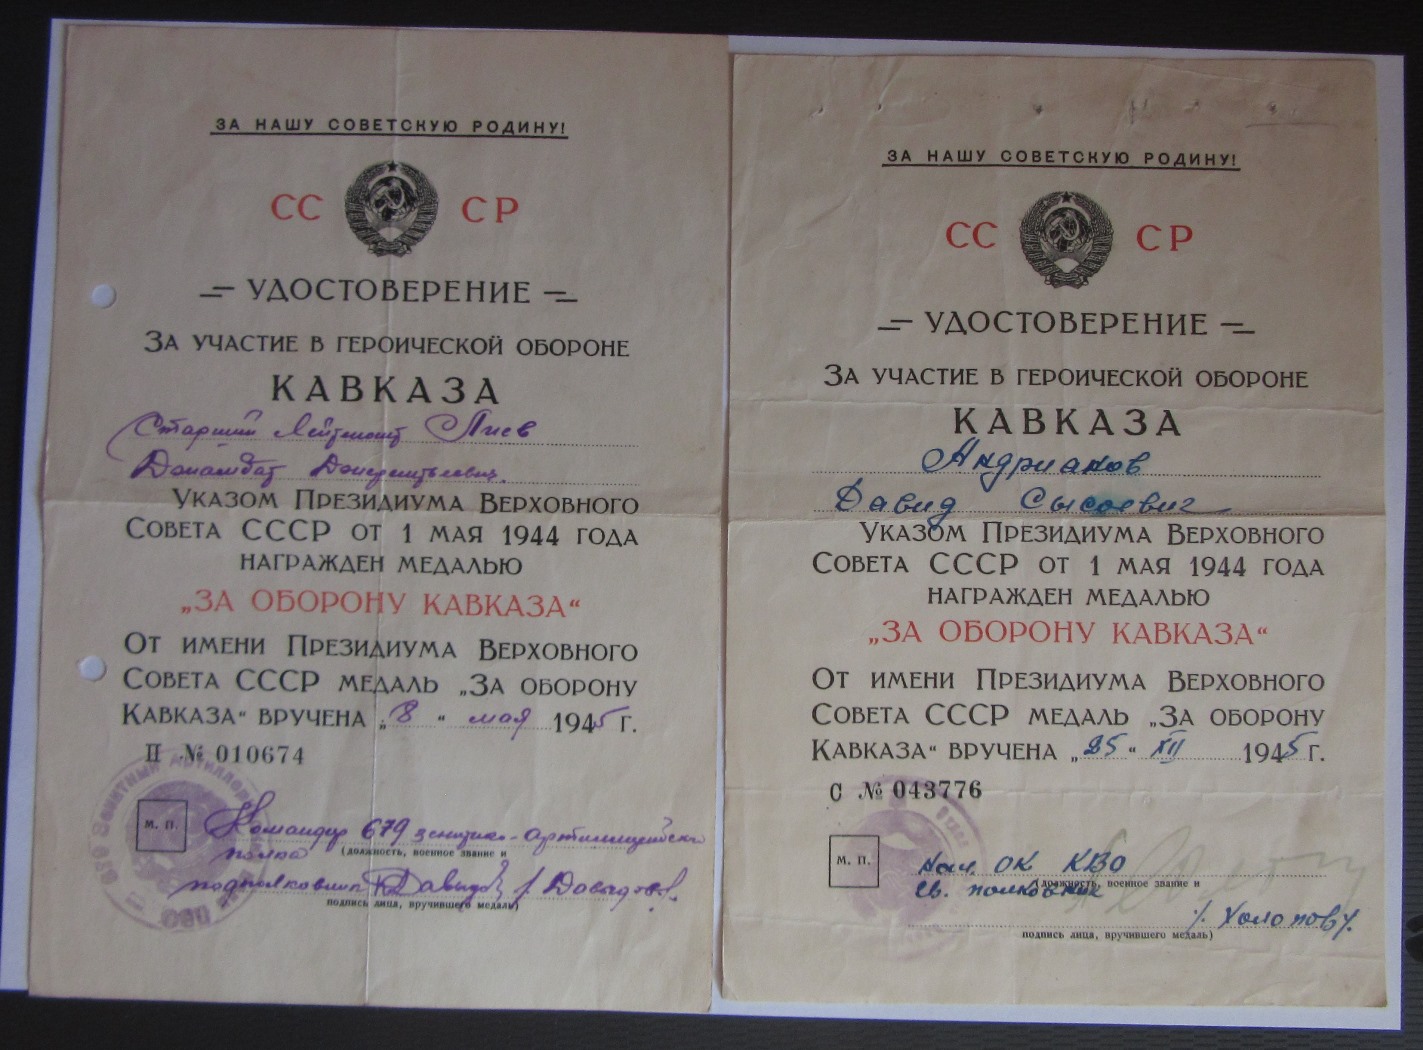 ЗА НАШУ СОВЕТСКУЮ РОДИНУ!
СС СР
УДОСТОВЕРЕНИЕ
ЗА УЧАСТИЕ В ГЕРОИЧЕСКОЙ ОБОРОНЕ
КАВКАЗА
Старший Лейтенант Плиев
УКАЗОМ ПРЕЗИДИУМА ВЕРХОВНОГО
СОВЕТА СССР ОТ 1 МАЯ 1944 ГОДА
НАГРАЖДЕН МЕДАЛЬЮ
„ЗА ОБОРОНУ КАВКАЗА“
ОТ ИМЕНИ ПРЕЗИДИУМА ВЕРХОВНОГО
СОВЕТА СССР МЕДАЛЬ „ЗА ОБОРОНУ
КАВКАЗА“ ВРУЧЕНА „8“ мая 1945 г.
П № 010674
М. П.
Командир 679 зенитно-артиллерийск
полка
(должность, военное звание и
подполковник Давыдов /Давыдов/.
подпись лица, вручившего медаль)
ЗА НАШУ СОВЕТСКУЮ РОДИНУ!
СС СР
УДОСТОВЕРЕНИЕ
ЗА УЧАСТИЕ В ГЕРОИЧЕСКОЙ ОБОРОНЕ
КАВКАЗА
Андрианов
Давид Сысоевич
УКАЗОМ ПРЕЗИДИУМА ВЕРХОВНОГО
СОВЕТА СССР ОТ 1 МАЯ 1944 ГОДА
НАГРАЖДЕН МЕДАЛЬЮ
„ЗА ОБОРОНУ КАВКАЗА“
ОТ ИМЕНИ ПРЕЗИДИУМА ВЕРХОВНОГО
СОВЕТА СССР МЕДАЛЬ „ЗА ОБОРОНУ
КАВКАЗА“ ВРУЧЕНА „25“ XII 1945 г.
С № 043776
М. П.
Нач. ОК КВО
гв. полковник
(должность, военное звание и
/Холопов/.
подпись лица, вручившего медаль)